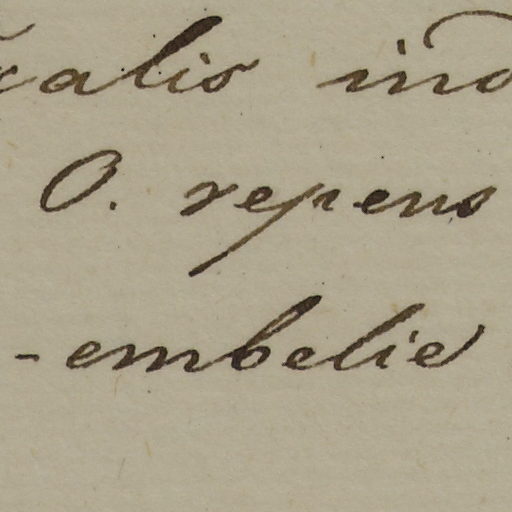 xalis ind
O. repens
-embelie